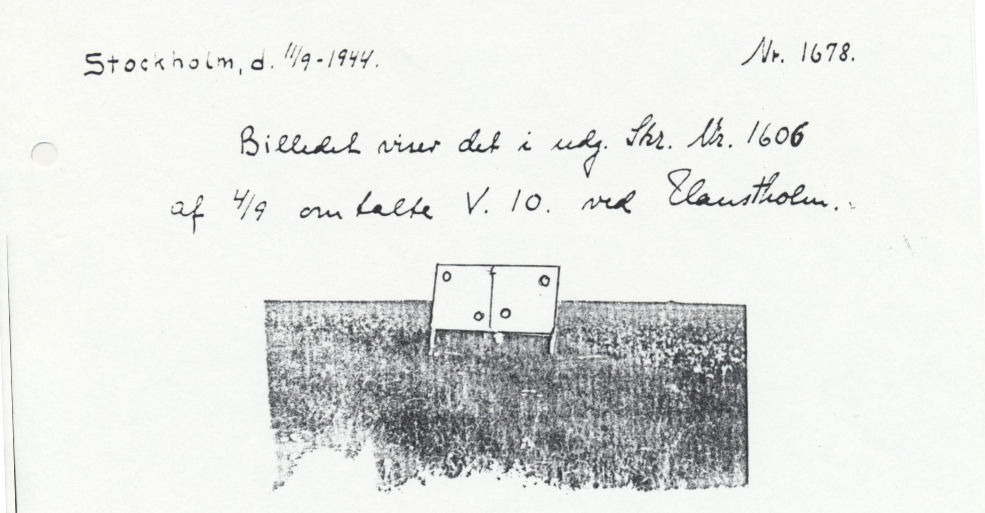 Stockholm, d. 11/9-1944. Nr. 1678.
Billedet viser det i udg. Skr. Nr. 1606
af 4/9 omtalte V. 10. ved Hanstholm.